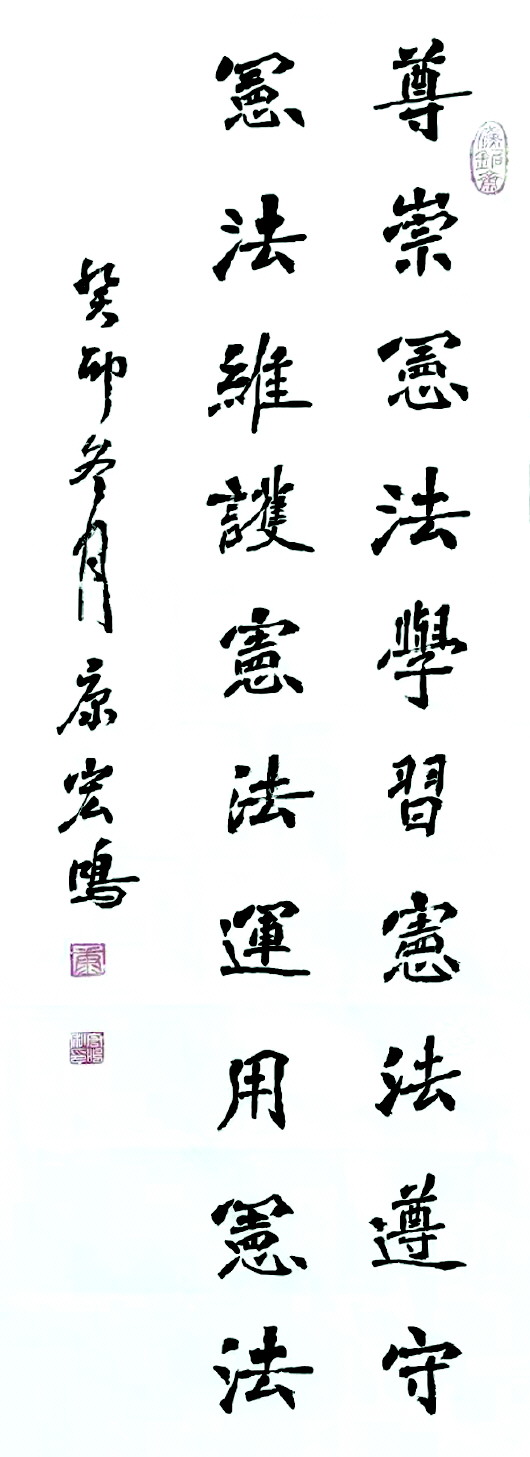 尊崇憲法學習憲法遵守
憲法維護憲法運用憲法
癸卯冬月康宏鳴